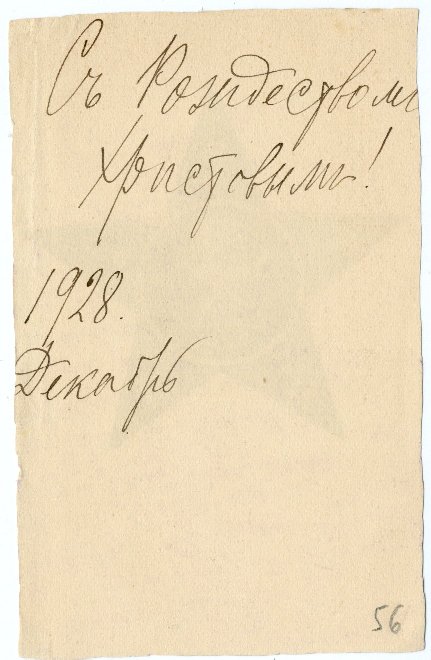 Съ Рождествомъ
Христовымъ!
1928.
Декабрь
56